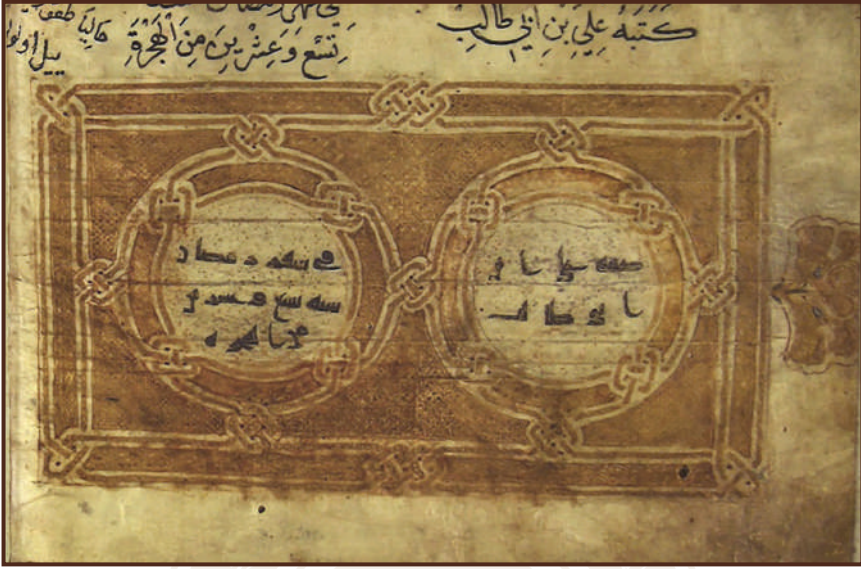 كَتَبَهُ عَلِي بْن اَبي طَالِبْ
في شهر رمضان
تِسْعٍ وَعِشْرِينَ مِنَ الْهِجْرَةِ
كتبه علي بن
ابي طالب
في شهر رمضان
سنة تسع وعشرين
من الهجرة